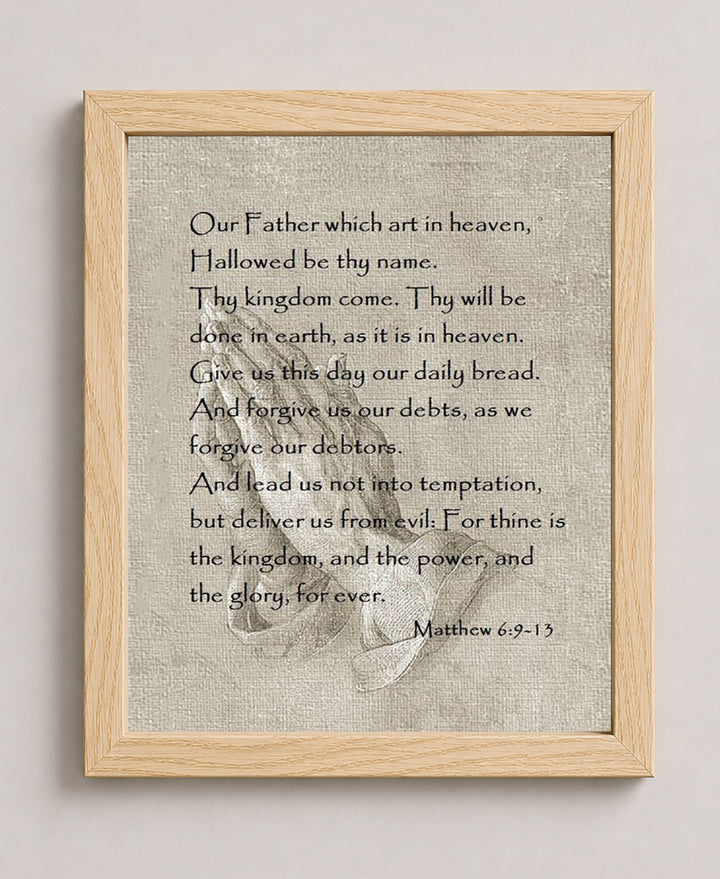 Our Father which art in heaven,
Hallowed be thy name.
Thy kingdom come. Thy will be
done in earth, as it is in heaven.
Give us this day our daily bread.
And forgive us our debts, as we
forgive our debtors.
And lead us not into temptation,
but deliver us from evil: For thine is
the kingdom, and the power, and
the glory, for ever.
Matthew 6:9-13